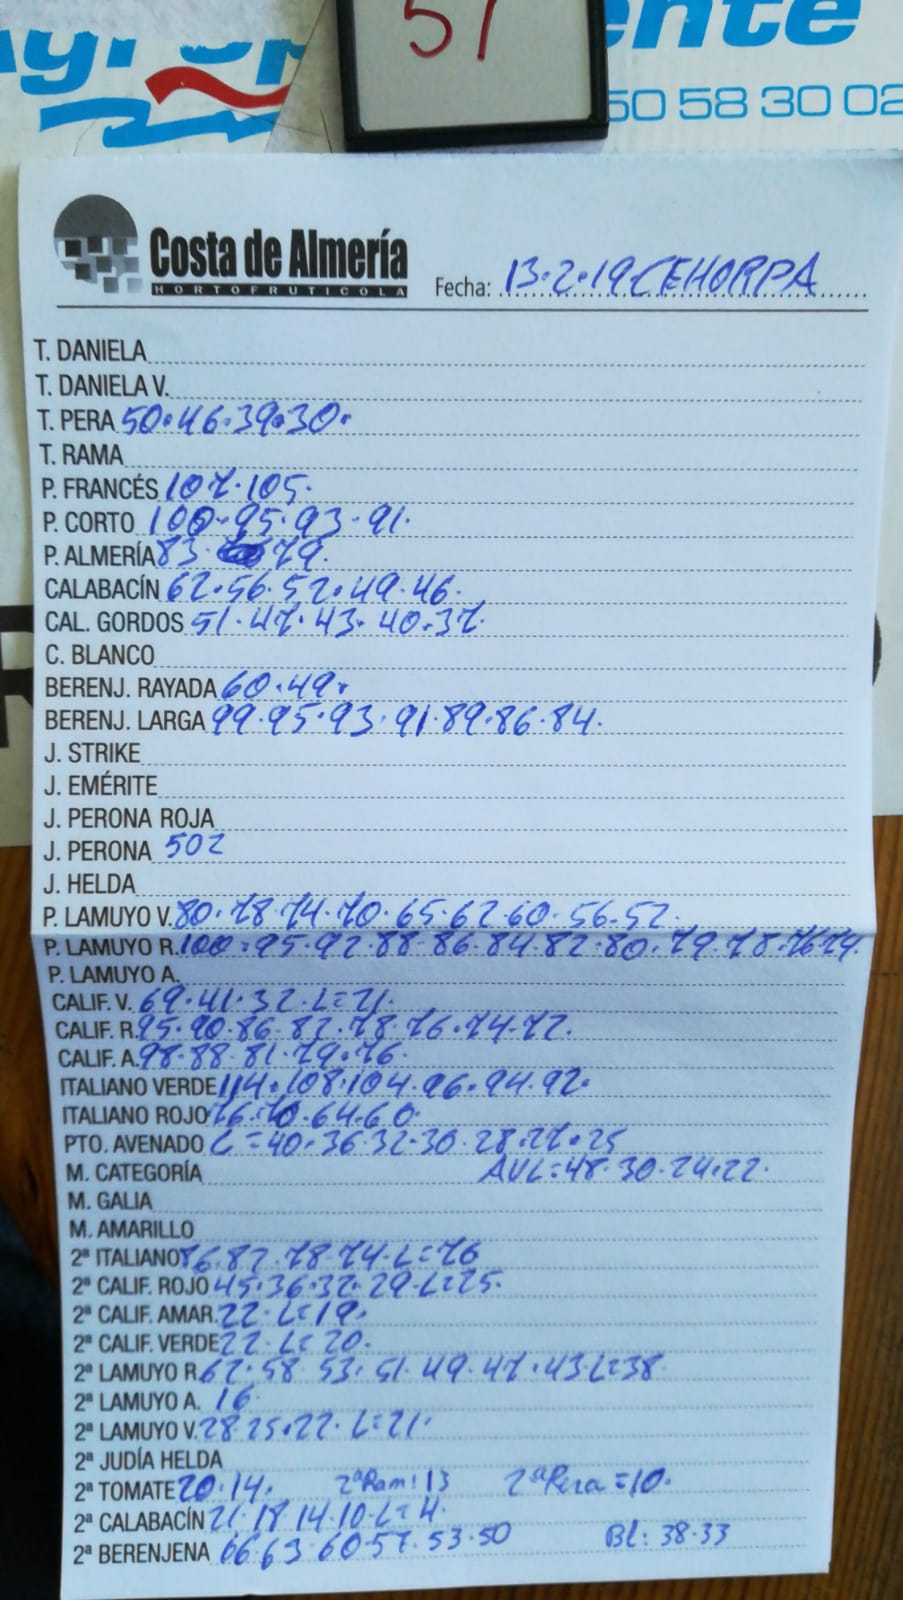 51
ente
50 58 30 02
Costa de Almería
HORTOFRUTICOLA
Fecha: 13·2·19 CEHORPA
T. DANIELA
T. DANIELA V.
T. PERA 50·46·39·30·
T. RAMA
P. FRANCÉS 107·105·
P. CORTO 100·95·93·91·
P. ALMERÍA 83· 79·
CALABACÍN 62·56·52·49·46·
CAL. GORDOS 51·47·43·40·37·
C. BLANCO
BERENJ. RAYADA 60·49·
BERENJ. LARGA 99·95·93·91·89·86·84·
J. STRIKE
J. EMÉRITE
J. PERONA ROJA
J. PERONA 502
J. HELDA
P. LAMUYO V. 80·78·74·70·65·62·60·56·52·
P. LAMUYO R. 100·95·92·88·86·84·82·80·79·78·76·74·
P. LAMUYO A.
CALIF. V. 69·41·32·L=21·
CALIF. R. 95·90·86·82·78·76·74·72·
CALIF. A. 98·88·81·79·76·
ITALIANO VERDE 114·108·104·96·94·92·
ITALIANO ROJO 76·70·64·60·
PTO. AVENADO L=40·36·32·30·28·27·25
M. CATEGORÍA AVL=48·30·24·22·
M. GALIA
M. AMARILLO
2ª ITALIANO 86·82·78·74·L=76
2ª CALIF. ROJO 45·36·32·29·L=25·
2ª CALIF. AMAR. 22·L=19·
2ª CALIF. VERDE 22·L=20·
2ª LAMUYO R. 62·58·53·51·49·47·43·L=38·
2ª LAMUYO A. 16·
2ª LAMUYO V. 28·25·22·L=21·
2ª JUDÍA HELDA
2ª TOMATE 20·14· 2ªRam: 13 2ªPera=10·
2ª CALABACÍN 21·18·14·10·L=4·
2ª BERENJENA 66·63·60·57·53·50 BL: 38·33